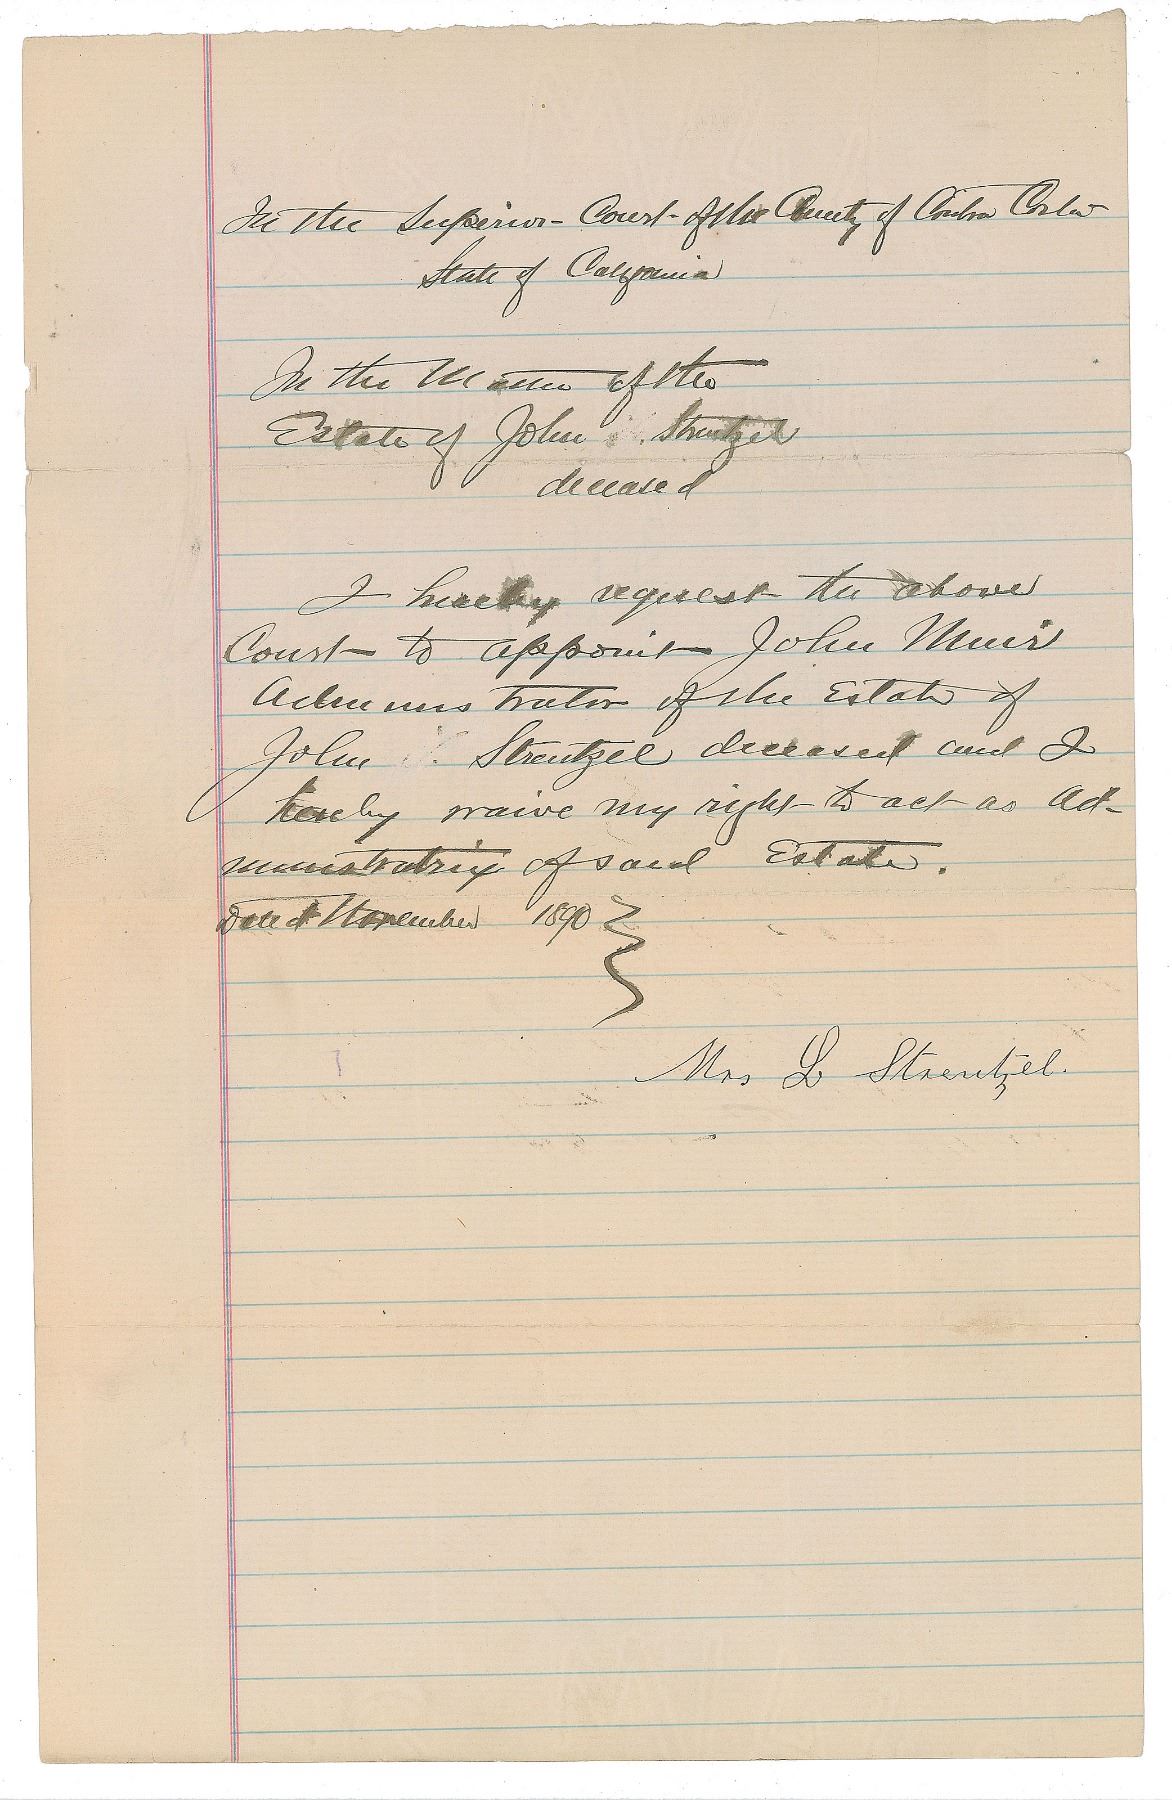 In the Superior Court of the County of Contra Costa
State of California
In the Matter of the
Estate of John Strentzel
deceased
I hereby request the above
Court to appoint John Muir
Administrator of the Estate of
John Strentzel deceased and I
hereby waive my right to act as Ad-
ministratrix of said Estate.
Dated November 1890
Mrs L Strentzel.